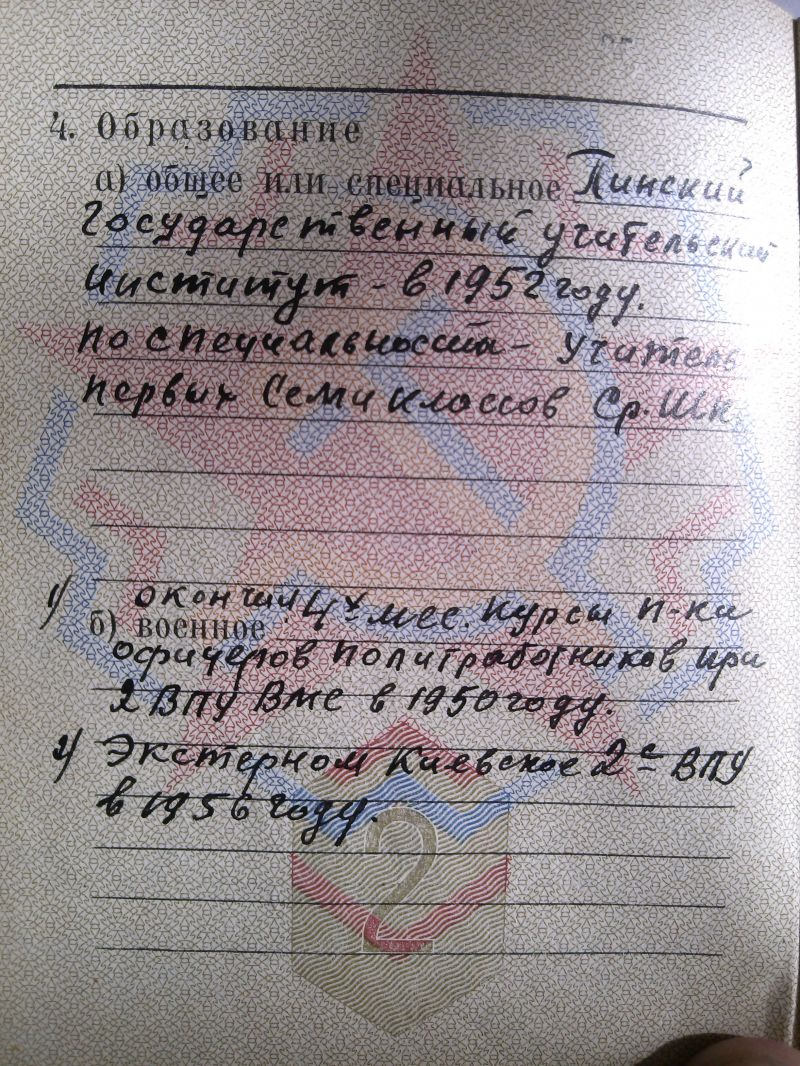 4. Образование
а) общее или специальное Пинский
Государственный учительский
институт - в 1952 году.
По специальности - учитель
первых семи классов Ср. Шк.
1) окончил 4х мес. курсы п-ки
б) военное
офицеров политработников при
2 ВПУ ВМС в 1950 году.
2) Экстерном Киевское 2е ВПУ
в 1956 году.
2